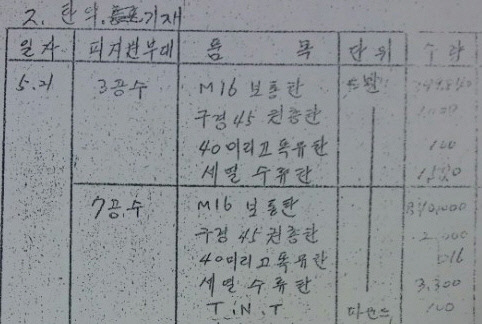 2. 탄약. 기재
일자 피지원부대 품 목 단위 수량
5.21 3공수 M16 보통탄 발
구경45 권총탄
40미리고폭유탄 100
세열 수류탄
7공수 M16 보통탄
구경 45 권총탄
40미리고폭유탄
세열 수류탄 3,300
T.N.T 파운드 100